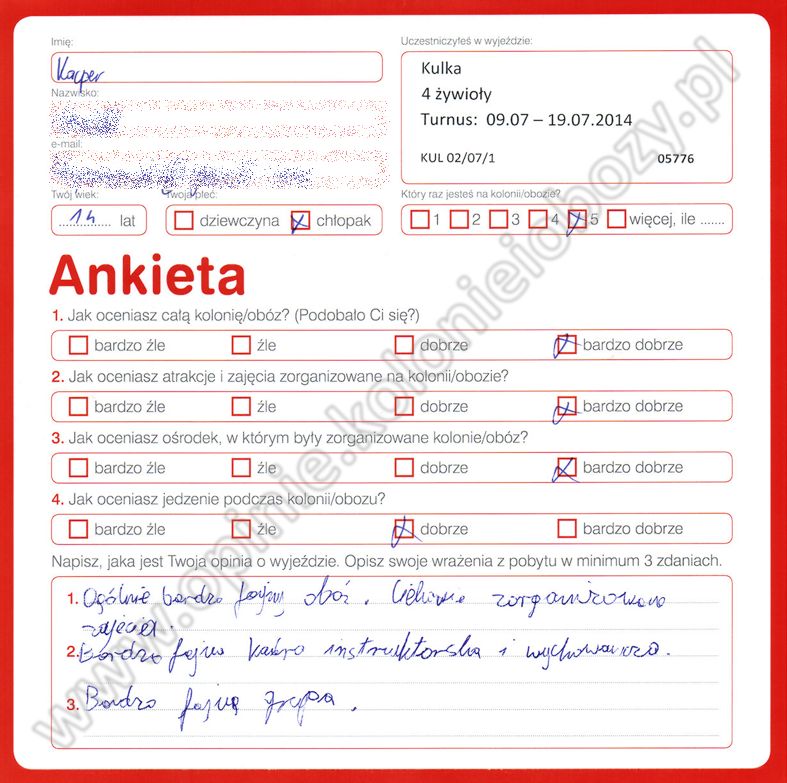 Imię:
Kacper
Uczestniczyłeś w wyjeździe:
Kulka
4 żywioły
Turnus: 09.07 – 19.07.2014
KUL 02/07/1 05776
Nazwisko:
e-mail:
Twój wiek:
14 lat
Twoja płeć:
dziewczyna chłopak
Który raz jesteś na kolonii/obozie?
1 2 3 4 5 więcej, ile .......
Ankieta
1. Jak oceniasz całą kolonię/obóz? (Podobało Ci się?)
bardzo źle źle dobrze bardzo dobrze
2. Jak oceniasz atrakcje i zajęcia zorganizowane na kolonii/obozie?
bardzo źle źle dobrze bardzo dobrze
3. Jak oceniasz ośrodek, w którym były zorganizowane kolonie/obóz?
bardzo źle źle dobrze bardzo dobrze
4. Jak oceniasz jedzenie podczas kolonii/obozu?
bardzo źle źle dobrze bardzo dobrze
Napisz, jaka jest Twoja opinia o wyjeździe. Opisz swoje wrażenia z pobytu w minimum 3 zdaniach.
1. Ogólnie bardzo fajny obóz. Ciekawie zorganizowane
zajęcia.
2. Bardzo fajna kadra instruktorska i wychowawcza.
3. Bardzo fajna grupa.
www.opinie.kolonieiobozy.pl